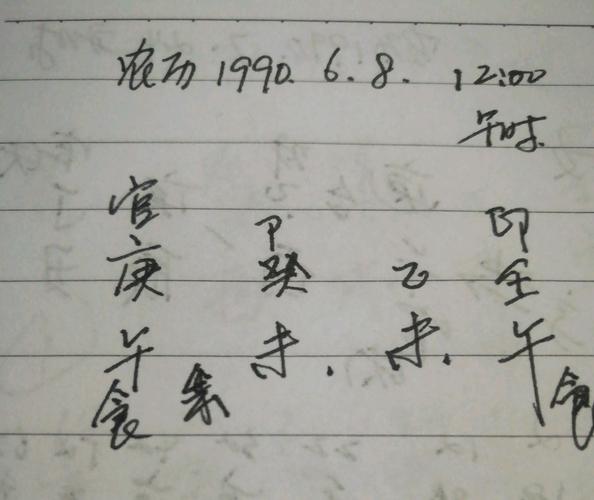 农历1990. 6. 8. 12:00
午时.
官 印
庚 癸 乙 壬
午 未. 未. 午
食 食